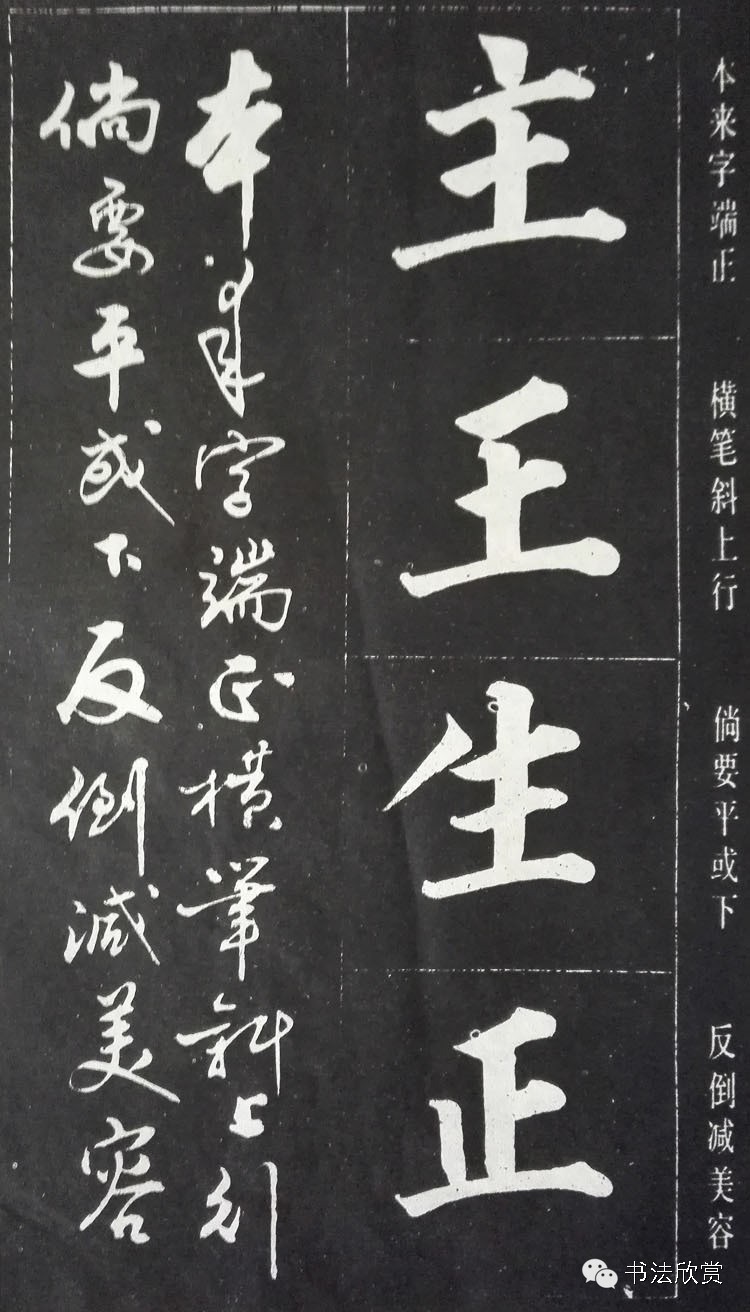 本来字端正 横笔斜上行 倘要平或下 反倒减美容
主王生正
本来字端正横筆斜上行
倘要平或下反倒減美容
书法欣赏